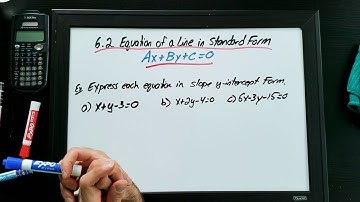 6.2 Equation of a Line in Standard Form
Ax+By+C=0
Ex. Express each equation in slope y-intercept form.
a) x+y-3=0 b) x+2y-4=0 c) 6x-3y-15=0
EXPO